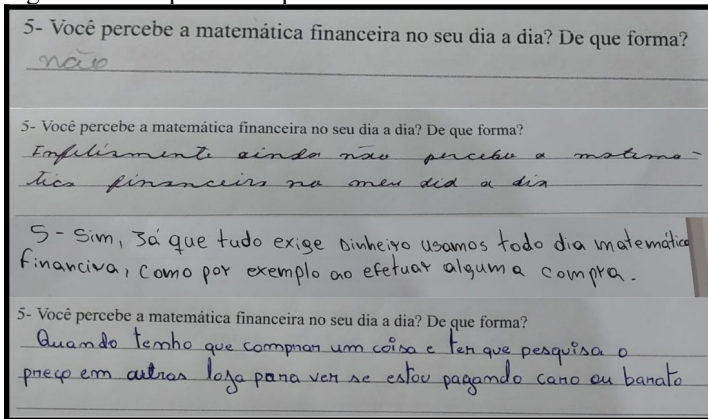 5- Você percebe a matemática financeira no seu dia a dia? De que forma?
não
5- Você percebe a matemática financeira no seu dia a dia? De que forma?
Infelismente ainda não percebo a matema-
tica financeira no meu dia a dia
5- Sim, Já que tudo exige Dinheiro usamos todo dia matemática
financiva, como por exemplo ao efetuar alguma compra.
5- Você percebe a matemática financeira no seu dia a dia? De que forma?
Quando temho que comprar um coisa e ter que pesquisa o
preço em outras loja para ver se estou pagando caro ou barato